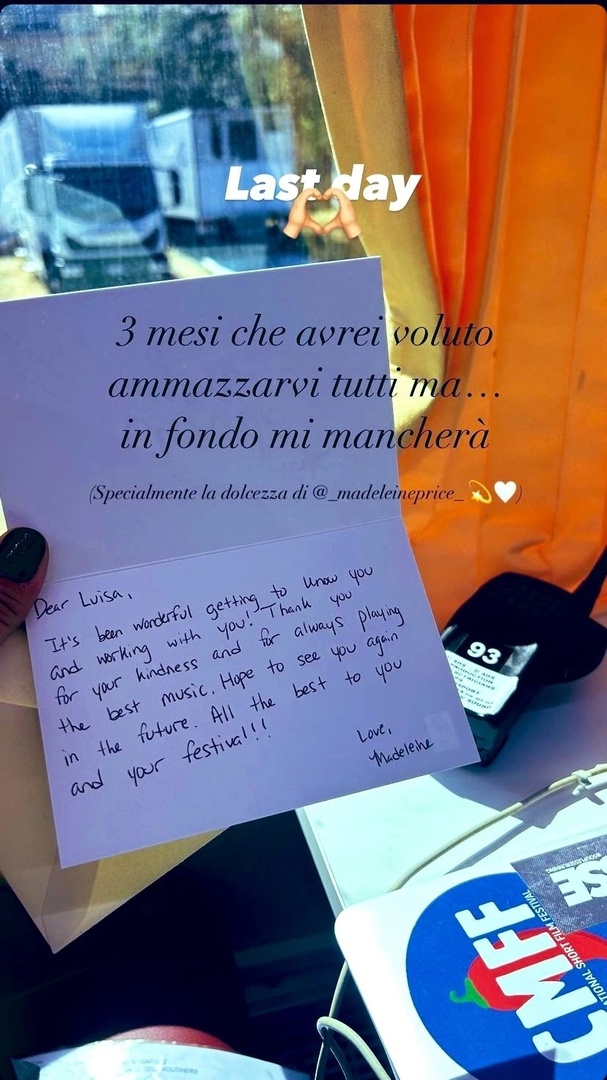 Last day
3 mesi che avrei voluto
ammazzarvi tutti ma...
in fondo mi mancherà
(Specialmente la dolcezza di @_madeleineprice_ 💫🤍)
Dear Luisa,
It's been wonderful getting to know you
and working with you! Thank you
for your kindness and for always playing
the best music. Hope to see you again
in the future. All the best to you
and your festival!!!
Love,
Madeleine
93
CMFF
NATIONAL SHORT FILM FESTIVAL